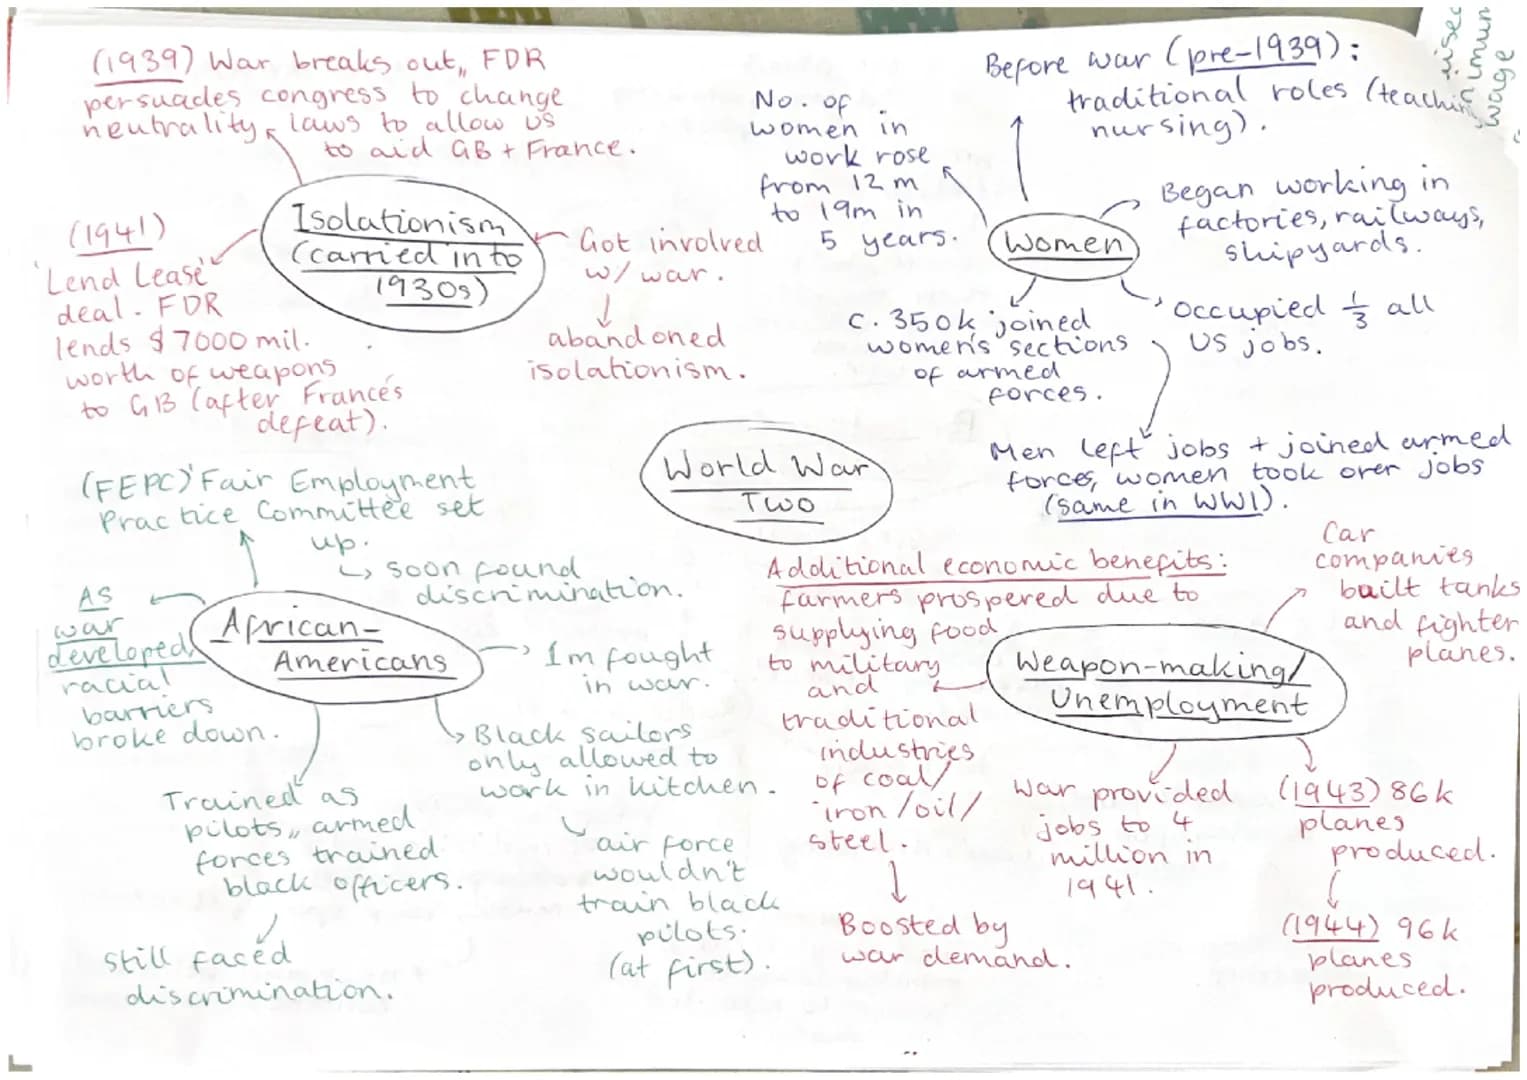 (1939) War breaks out, FDR
persuades congress to change
neutrality laws to allow US
to aid GB + France.
Isolationism
(carried into
1930s)
(1941)
'Lend Lease'
deal. FDR
lends $7000 mil.
worth of weapons
to GB (after France's
defeat).
Got involved
w/ war.
abandoned
isolationism.
No. of
women in
work rose
from 12m
to 19m in
5 years.
Before war (pre-1939):
traditional roles (teaching
nursing).
wage
Women
Began working in
factories, railways,
shipyards.
c. 350k joined
women's sections
of armed
forces.
Occupied 1/3 all
US jobs.
Men left jobs + joined armed
forces, women took over jobs
(same in WW1).
World War
Two
(FEPC) 'Fair Employment
Practice Committee set
up.
↳ soon found
discrimination.
African-
Americans
As
war
developed,
racial
barriers
broke down.
1m fought
in war.
Black sailors
only allowed to
work in kitchen.
air force
wouldn't
train black
pilots.
(at first).
Trained as
pilots, armed
forces trained
black officers.
Still faced
discrimination.
Additional economic benefits:
farmers prospered due to
supplying food
to military
and
traditional
industries
of coal/
iron/oil/
steel.
Boosted by
war demand.
Weapon-making/
Unemployment
Car
companies
built tanks
and fighter
planes.
War provided
jobs to 4
million in
1941.
(1943) 86k
planes
produced.
(1944) 96k
planes
produced.